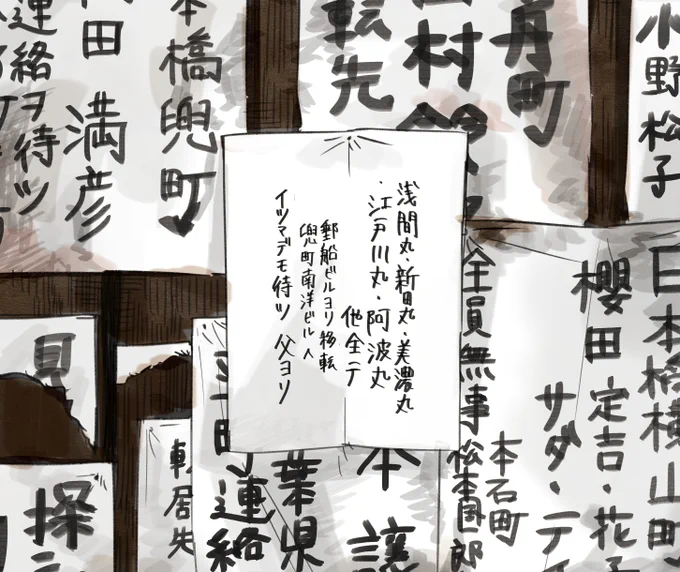 浅間丸・新田丸・美濃丸
・江戸川丸・阿波丸
他全テ
郵船ビルヨリ移転
兜町南洋ビルヘ
イツマデモ待ツ 父ヨリ
小野松子
丹町
村
転先
本橋兜町
田 満彦
連絡ヲ待ツ
日本橋横山町
櫻田 定吉・花子
サダ・テイ
全員無事
本石町
松本国一郎
本 譲
葉県
連絡
転居先
見
探